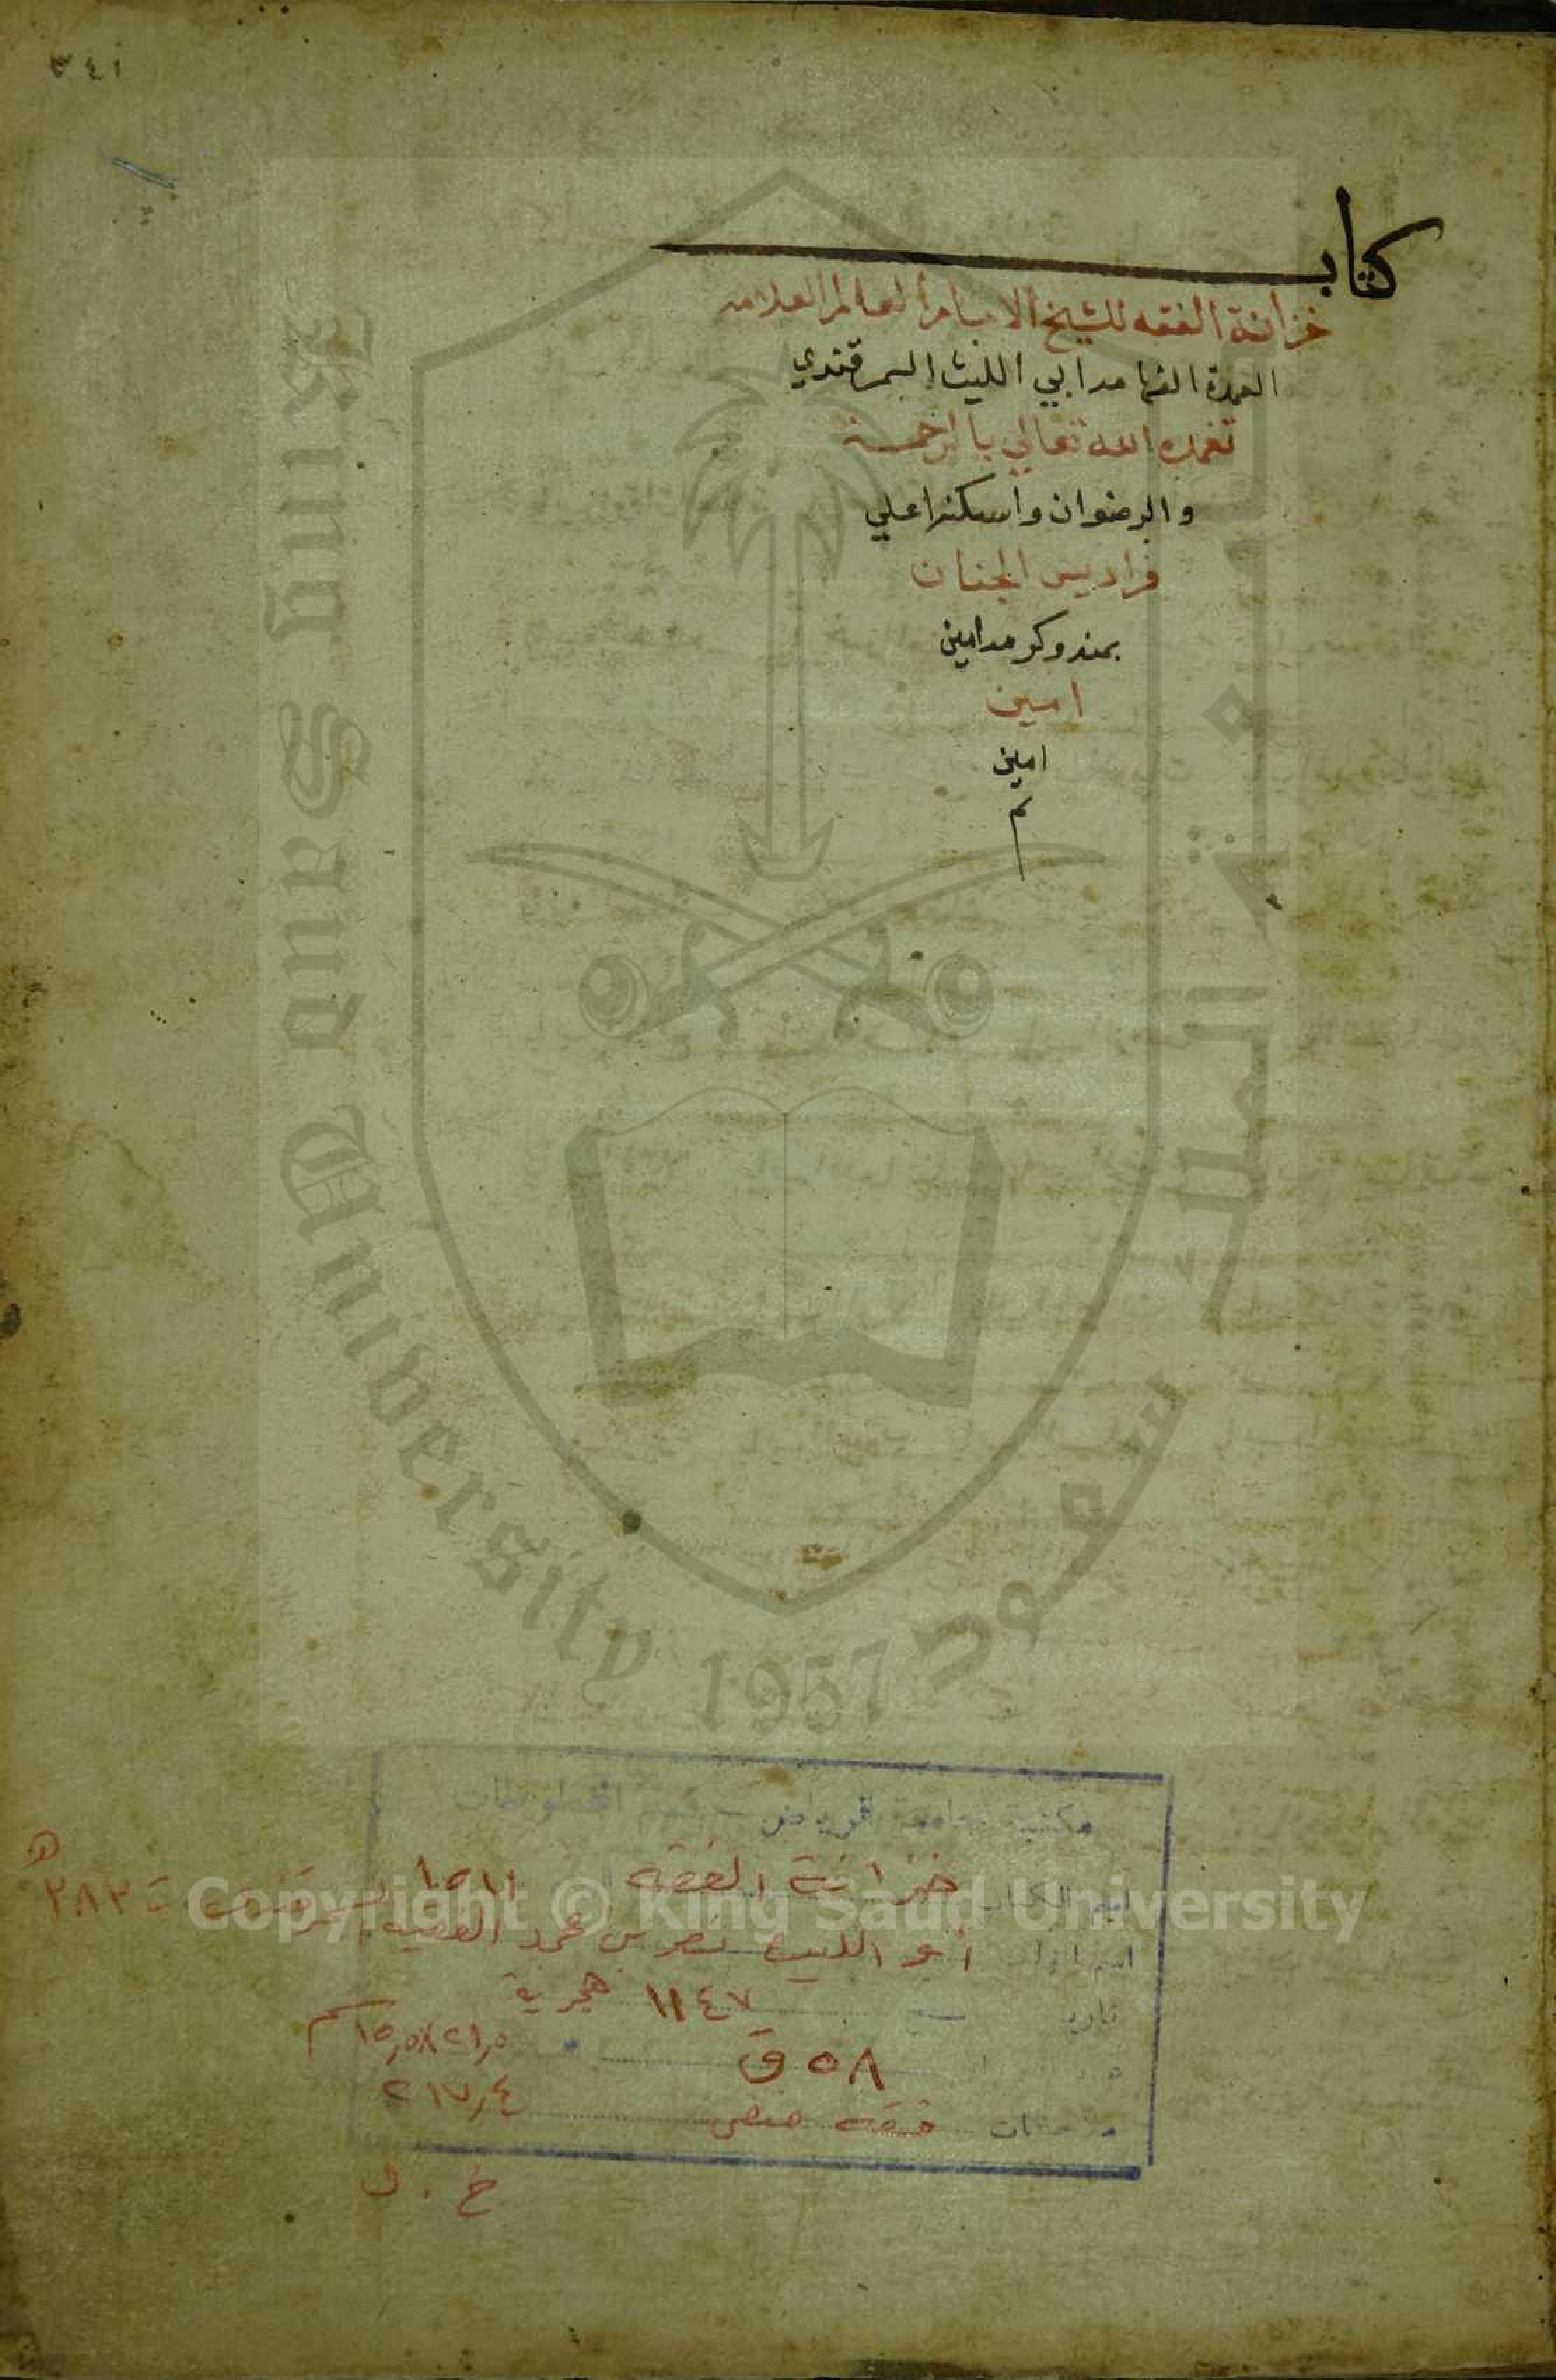 ٣٤١
كتاب
خزانة الفقه للشيخ الامام العالم العلامه
العمدة الفهامه ابي الليث السمرقندي
تغمده الله تعالي بالرحمة
والرضوان واسكنه اعلي
فراديس الجنان
بمنه وكرمه امين
امين
امين
م
King Saud University
جامعة الملك سعود
1957
مكتبة جامعة الرياض - قسم المخطوطات
اسم الكتاب خزانة الفقه ١٥١١
اسم المؤلف أبو الليث نصر بن محمد الفقيه السمرقندي ت ٣٨٣ هـ
تاريخ ١١٤٧ هجرية
٥٨ ق ٢١,٥×١٥,٥ سم
ملاحظات فقه حنفي ٢١٧,٤
خ . ف
Copyright © King Saud University